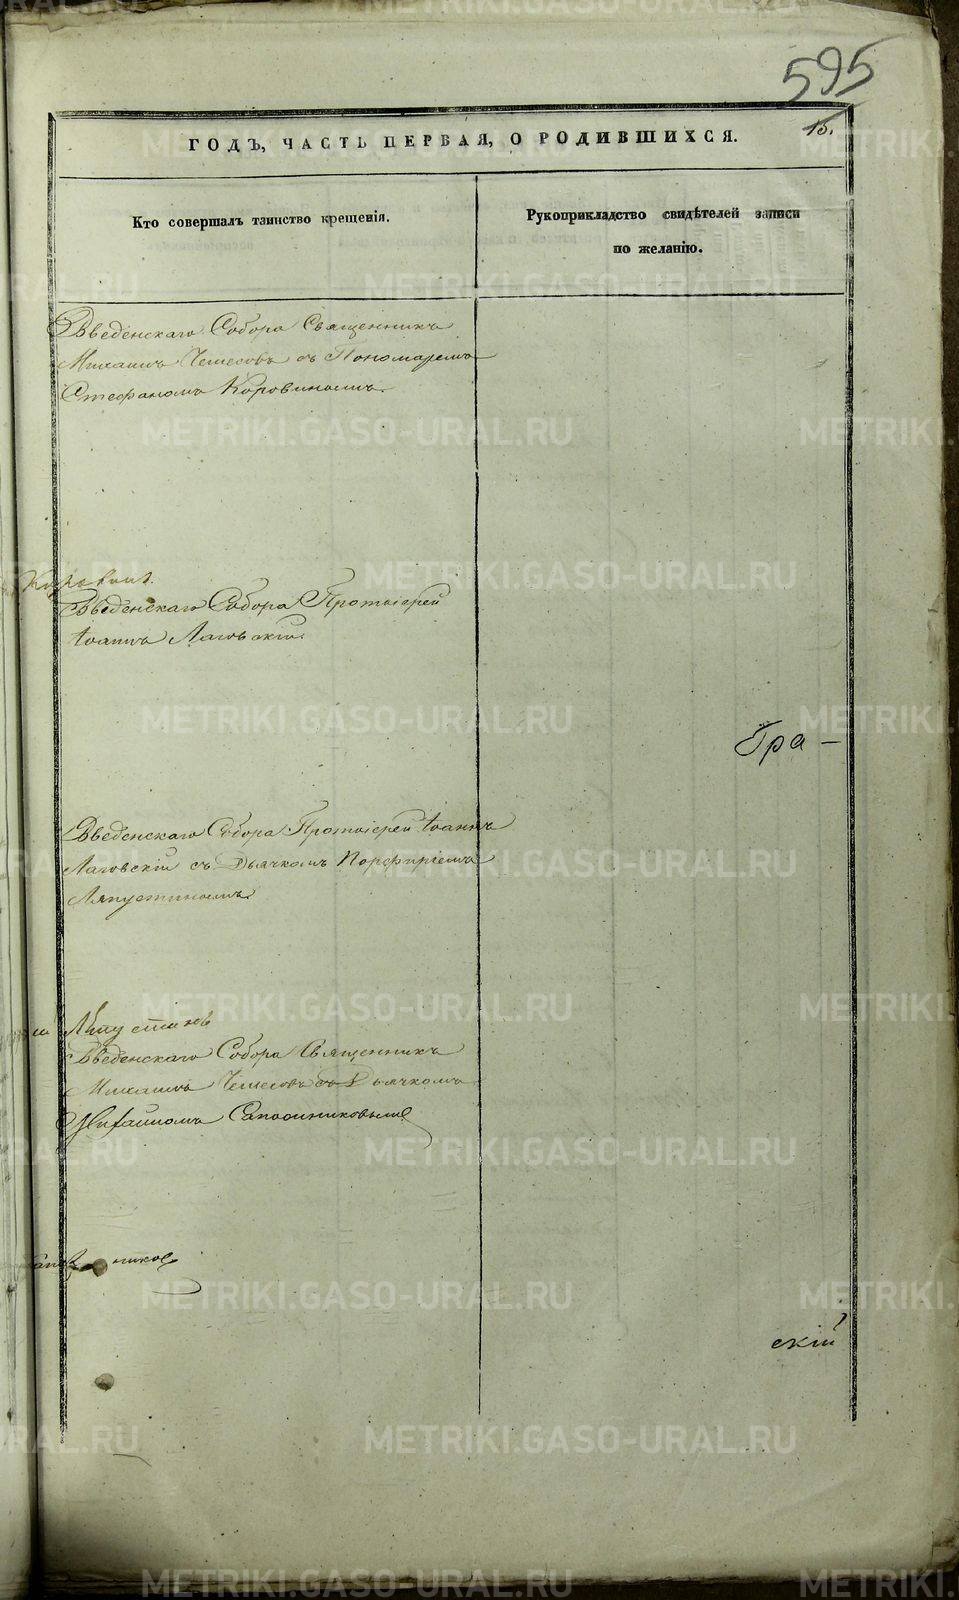 595
15.
ГОДЪ, ЧАСТЬ ПЕРВАЯ, О РОДИВШИХСЯ.
Кто совершалъ таинство крещенія.
Рукоприкладство свидѣтелей записи
по желанію.
Введенскаго Собора Священникъ
Михаилъ Чемесовъ съ Пономаремъ
Стефаномъ Коровинымъ.
Коровинъ.
Введенскаго Собора Протоіерей
Іоаннъ Лаговскій.
Гра –
Введенскаго Собора Протоіерей Іоаннъ
Лаговскій съ Дьячкомъ Порфиріемъ
Ляпустинымъ.
Ляпустинъ
Введенскаго Собора Священникъ
Михаилъ Чемесовъ съ Дьячкомъ
Сапожниковымъ
скій
METRIKI.GASO-URAL.RU